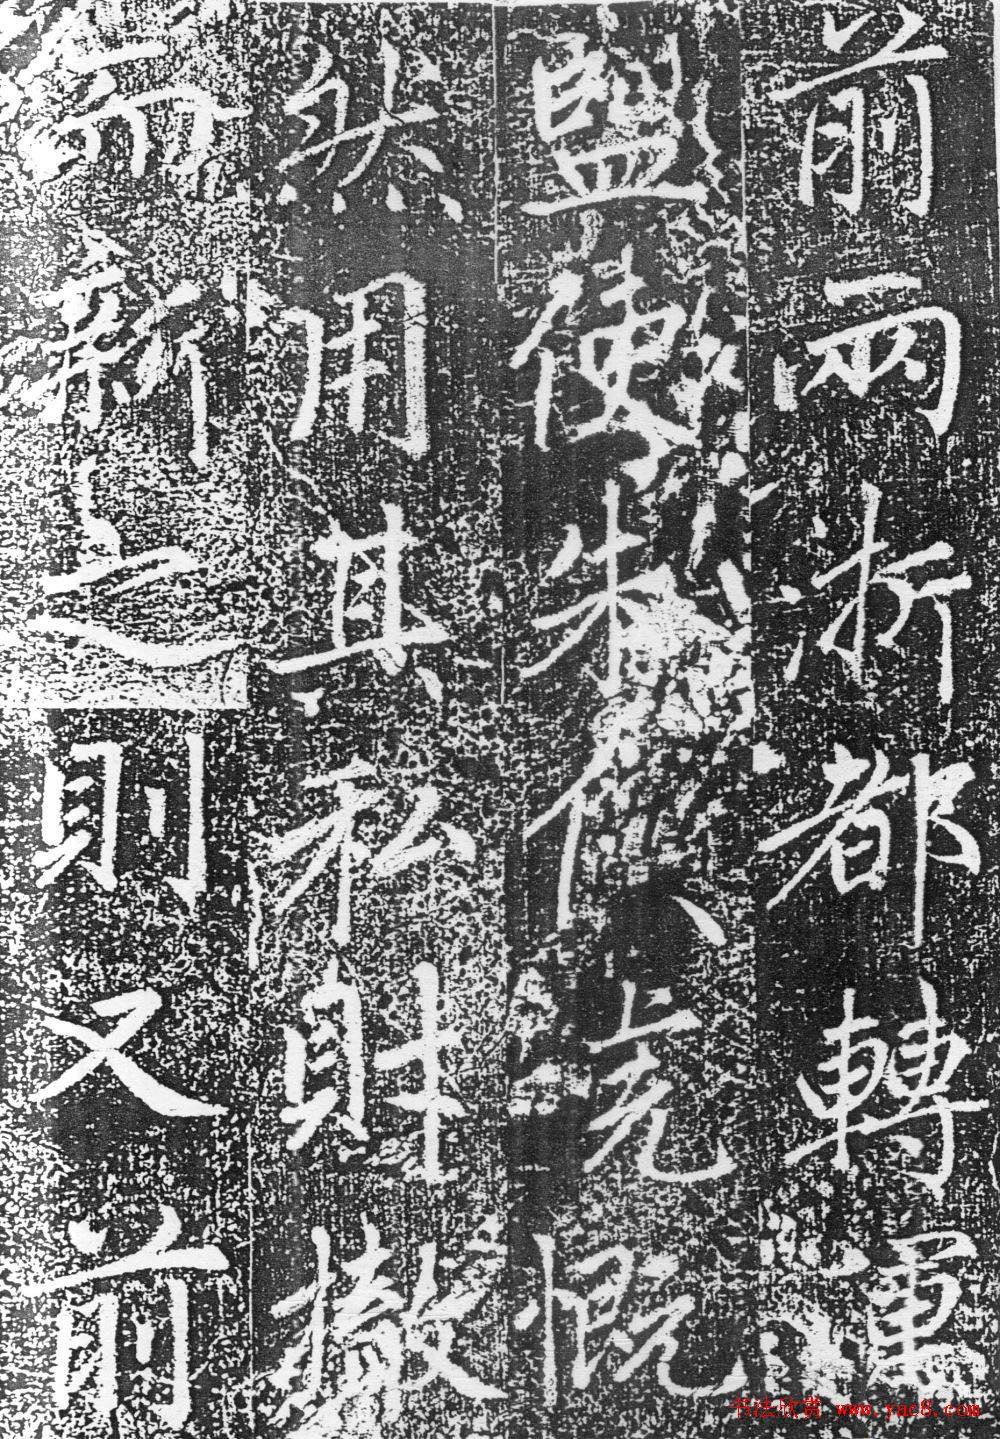 前兩浙都轉運
鹽使朱慨
然用其私財撤
而新之則又前
书法欣赏 www.yac8.com